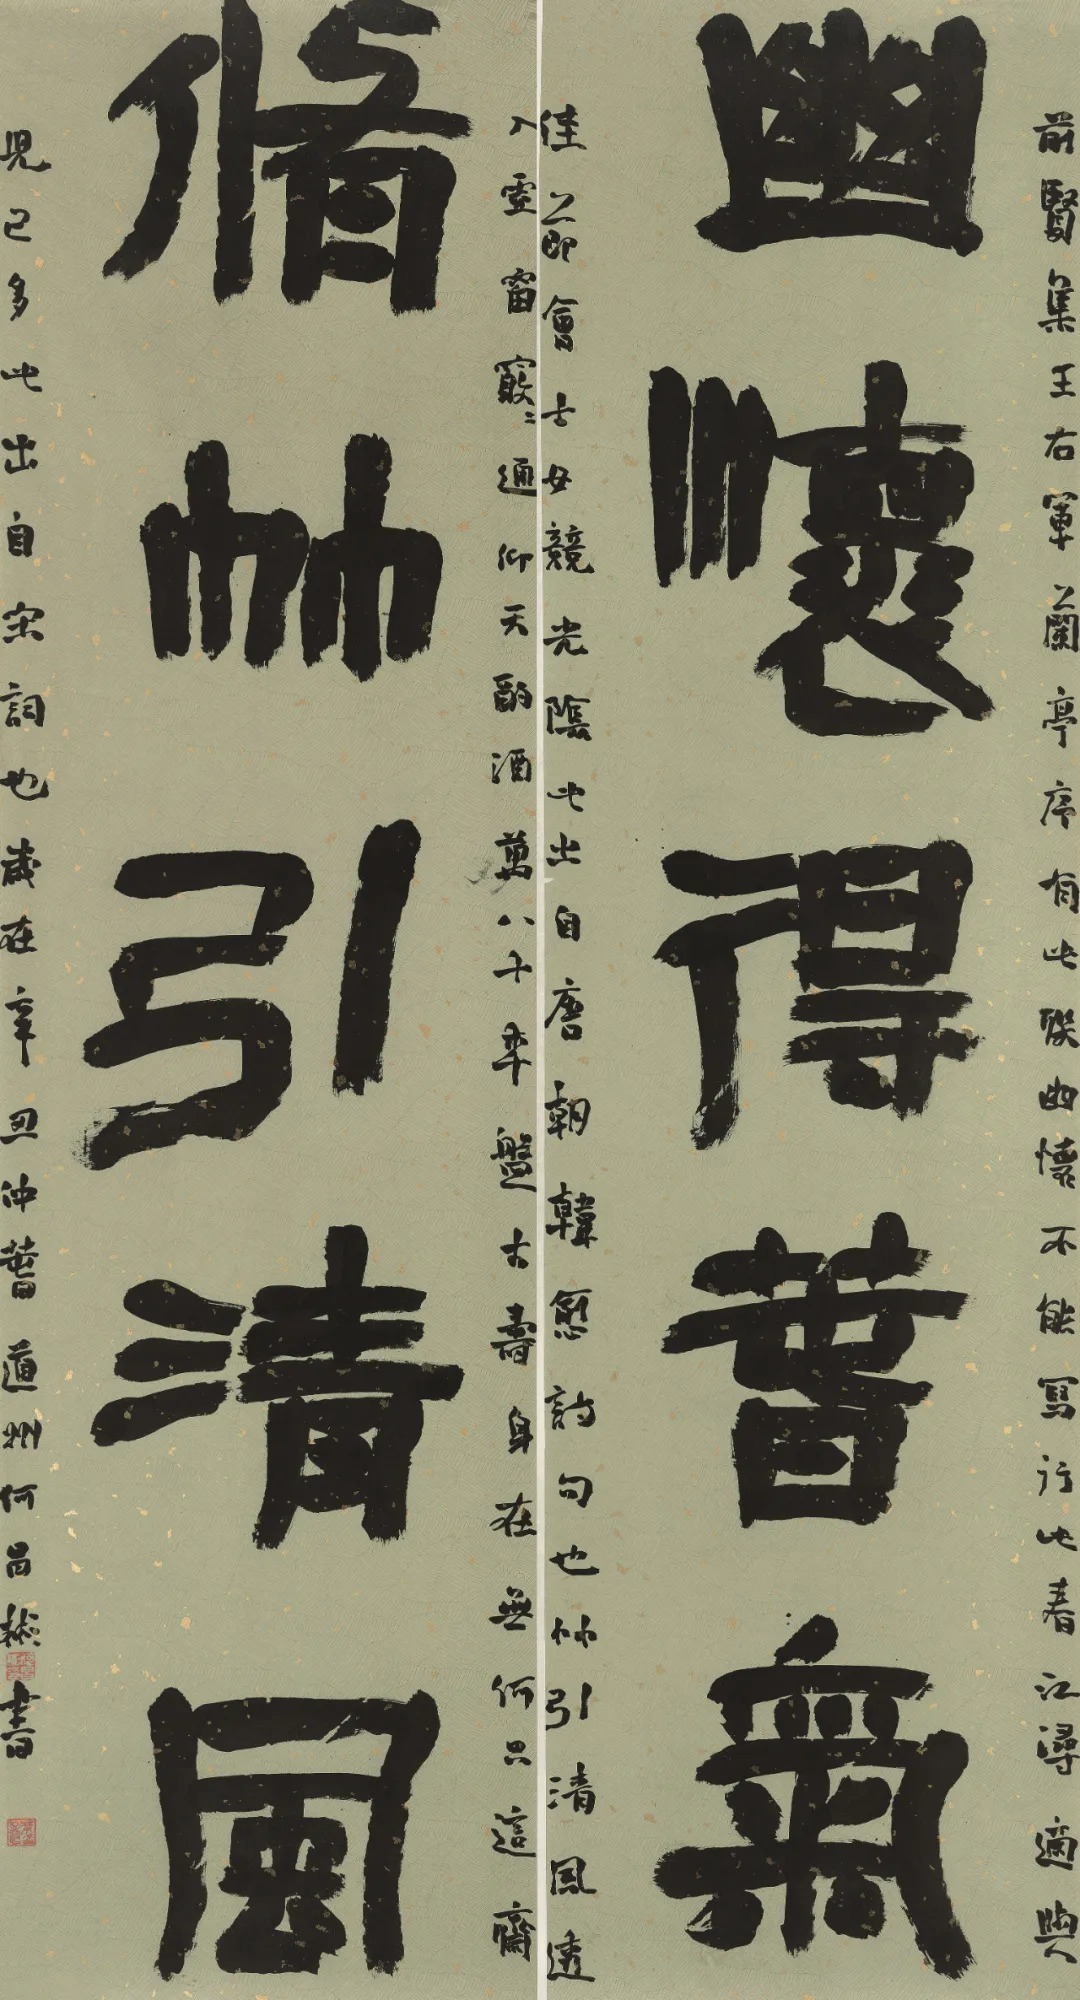 前賢集王右軍蘭亭序有此聯幽懷不能寫行此春江潯適與
幽懷得春氣
佳節會士女競光陰此出自唐朝韓愈詩句也竹引清風透
入雲窗竅竅通仰天酌酒萬八千年盤古壽身在無何只這齋
脩竹引清風
兒已多此出自宋詞也歲在辛丑仲春道州何昌書